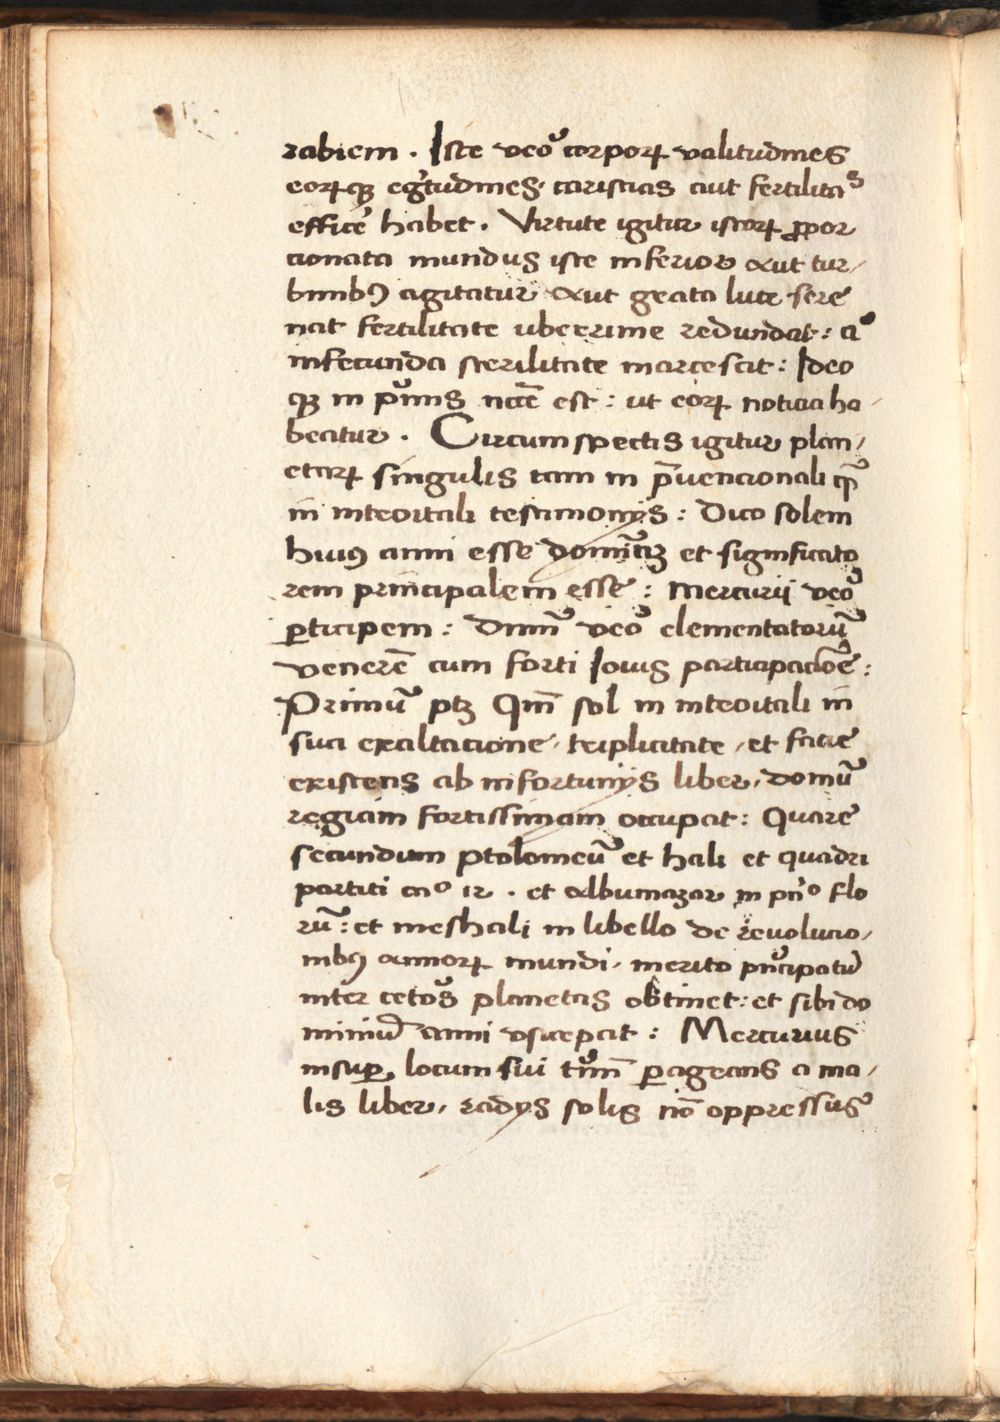 rabiem . Iste vero corporꝝ valitudines
eorꝝqꝫ egritudines. caristias aut fertilitas
efficere habet . Virtute igitur istorꝝ ꝓpor
cionata mundus iste inferior aut tur,
binibꝰ agitatur aut grata luce sere
nat fertilitate uberrime redundat : a
infecunda sterilitate marcescit : Ideo
qꝫ in primis necē est : ut eorꝝ noticia ha,
beatur . Circumspectis igitur plan,
etarꝝ singulis tam in p̄uencionali qꝫ
in introitali testimonijs : Dico solem
huiꝰ anni esse domitꝫ et significato
rem principalem esse : Mercurij vero
ꝑticipem : Dnm̄ vero elementatorū
venerē cum forti Iovis participacōe :
Primū ptꝫ Qm̄ sol in introitali in
sua exaltacione, triplicitate, et facie
existens ab infortunijs liber, domū
regiam fortissimam occupat : Quare
secundum ptolomeū et hali et quadri
partiti cno 12 . et albumazar in pno flo
rū : et meshali in libello de revolucio,
nibꝰ annorꝝ mundi, merito principatū
inter ceteros planetas obtinet : et sibi do
miniū anni usurpat : Mercurius
insuꝑ, locum sui tm̄ ꝑagrans a ma,
lis liber, radijs solis nō oppressus